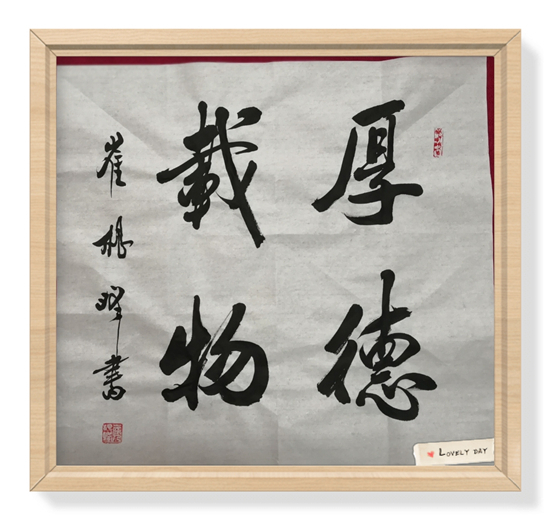 厚德
載物
崔 書
LOVELY DAY